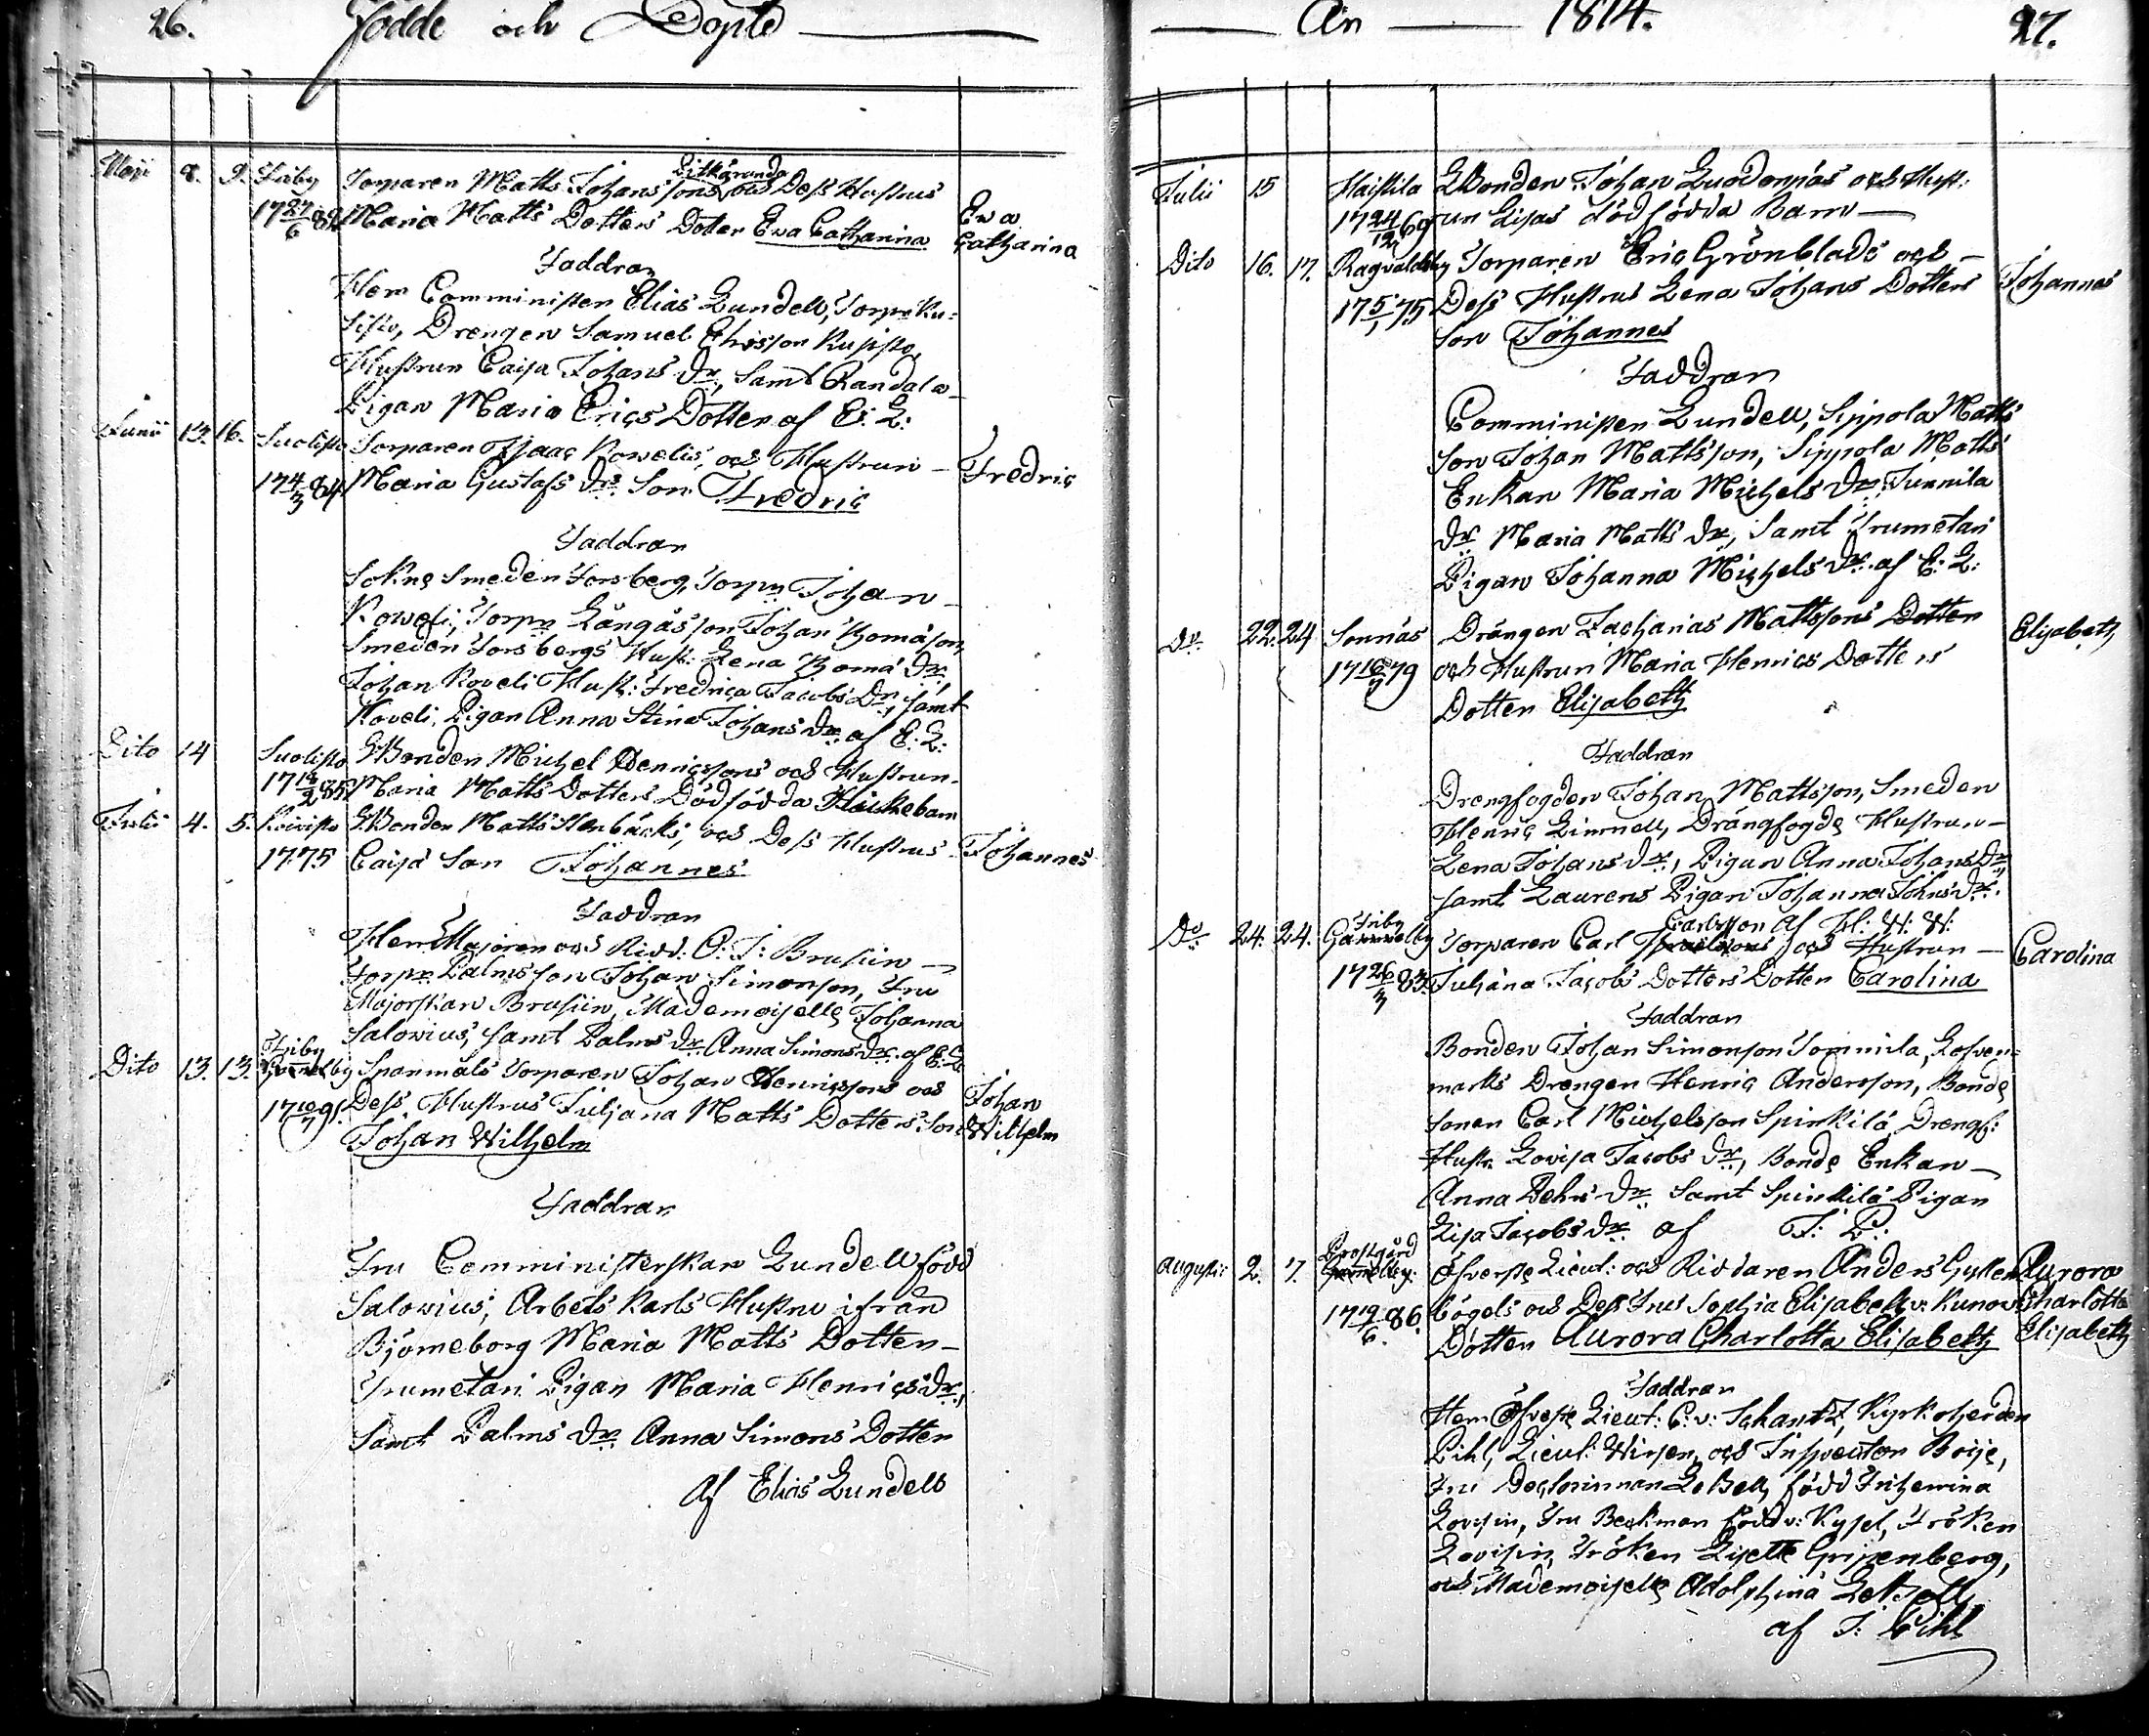 26. Födde och Döpte
Maji 8. 9. Friby Torparen Matts Johanssons Pitkäranda och Dess Hustrus Eva
17 27/6 Maria Matts Dotters Dotter Eva Catharina Catharina
Faddrar
Herr Comministern Elias Lundell, Torp: Ku=
sisto, Drengen Samuel Ericsson Kusisto,
Hustrun Caisa Johans Dr, samt Randala
Pigan Maria Erics Dotter af E: L:
Junii 13. 16. Suolisto Torparen Isaac Kowelis, och Hustrun Fredric
17 4/3 84 Maria Gustafs Drs Son Fredric
Faddrar
Sokne Smeden Forsberg, Torpn Johan
Koweli, Torpn Långås son Johan Thomasson,
Smeden Forsbergs Hust: Lena Thomä Dr,
Johan Koveli Hust: Fredrica Jacobs Dr, samt
Koveli Pigan Anna Stina Johans Dr: af E: L:
Dito 14 Suolisto LBonden Michel Henricssons och Hustrun
17 /2 85 Maria Matts Dotters Dödfödda Flickebarn
Julii 4. 5. Koivisto LBonden Matts Stenbäcks, och Dess Hustrus Johannes
1775 Caisa Son Johannes
Faddrar
Herr Majoren och Ridd: O: J: Brusiin
Torpn Palms son Johan Simonson, Fru
Majorskan Brusiin, Mademoiselle Johanna
Salovius, samt Palms Dr Anna Simons Dr: af E: L
Dito 13. 13. Friby Spanmåls Torparen Johan Henricssons och Johan
17 10/7 91. Dess Hustrus Juliana Matts Dotters Son Wilhelm
Johan Wilhelm
Faddrar
Fru Comministerskan Lundell född
Salovius, Arbets Karls Hustru ifrån
Björneborg Maria Matts Dotter
Trumetari Pigan Maria Henrics Dr,
Samt Palms Dr Anna Simons Dotter
Af Elias Lundell
År 1814. 27.
Julii 15 Haistila LBonden Johan Luodonpäs och Hust:
17 24/12 69 run Lisas dödfödda Barn
Dito 16. 17. Ragvaldsby Torparen Eric Grönblads och Johannes
17 5/1 75 Dess Hustrus Lena Johans Dotters
Son Johannes
Faddrar
Comministern Lundell, Sippola Matts
Son Johan Mattsson, Sippola Matts
Enkan Maria Michels Dr: Junnila
Dr Maria Matts Dr, Samt Trumetari
Pigan Johanna Michels Dr: af E: L:
Do 22. 24 Sonnäs Drängen Zacharias Mattssons Dotter Elisabeth
17 /7 79 och Hustrun Maria Henrics Dotters
Dotter Elisabeth
Faddrar
Drengfogden Johan Mattsson, Smeden
Henric Linnell, Drängfogde Hustrun
Lena Johans Dr, Pigan Anna Johans Dr
samt Laurens Pigan Johanna Johns Dr:
Carlsson af H: W: W:
Do 24. 24. Friby Torparen Carl och Hustrun Carolina
17 26/3 83. Juliana Jacobs Dotters Dotter Carolina
Faddrar
Bonden Johan Simonson Tommila, Lofven=
marks Drengen Henric Andersson, Bonde
sonen Carl Michelsson Spinkilä, Drengf:
Hustr: Lovisa Jacobs Dr, Bonde Enkan
Anna Pehrs Dr Samt Spinkilä Pigan
Lisa Jacobs Dr af J: P:
Augustii 2. 7. Prostgård Öfverste Lieut: och Riddaren Anders Gyllen Aurora
17 19/6 86. bögels och Dess Frus Sophia Elisabeth v: Kunow Charlotta
Dotter Aurora Charlotta Elisabeth Elisabeth
Faddrar
Herr Öfverste Lieut: C: v: Schantz, Kyrkoherden
Pihl, Lieut: Wirsen, och Inspector Boije,
Fru Doctorinnan LeBell, född
Fru Beckman född v: Kysel, Fröken
Fröken Lisette Gripenberg,
och Mademoiselle Adolphina LeBell
af J: Pihl